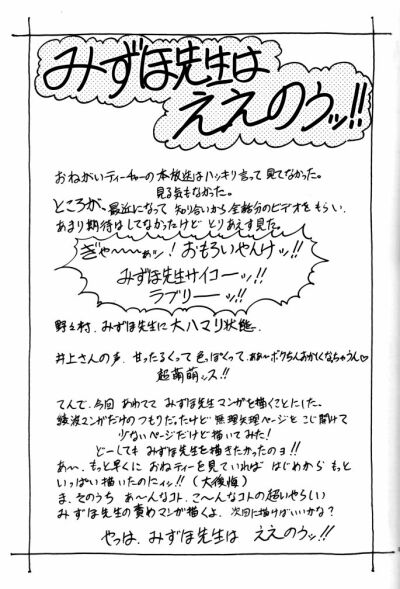 みずほ先生は
ええのうッ!!
おねがいティーチャーの本放送はハッキリ言って見てなかった。
見る気もなかった。
ところが、最近になって知り合いから全話分のビデオをもらい、
あまり期待はしてなかったけどとりあえず見た。
ぎゃ〜〜ぁッ!おもろいやんけッ!!
みずほ先生サイコーッ!!
ラブリーーッ!!
野々村、みずほ先生に大ハマリ状態。
井上さんの声、甘ったるくって色っぽくって、ああ〜ボクちんおかしくなちゃうん♡
超萌萌ッス!!
てんで、今回あわててみずほ先生マンガを描くことにした。
綾波マンガだけのつもりだったけど無理矢理ページをこじ開けて
少ないページだけど描いてみた!
どーしてもみずほ先生を描きたかったのョ!!
あ〜、もっと早くにおねティーを見ていればはじめからもっと
いっぱい描いたのにィッ!!(大後悔)
ま、そのうちあ〜んなコト、こ〜んなコトの超いやらしい
みずほ先生の責めマンガ描くよ、次回に描けばいいかな?
やっぱ、みずほ先生はええのうッ!!